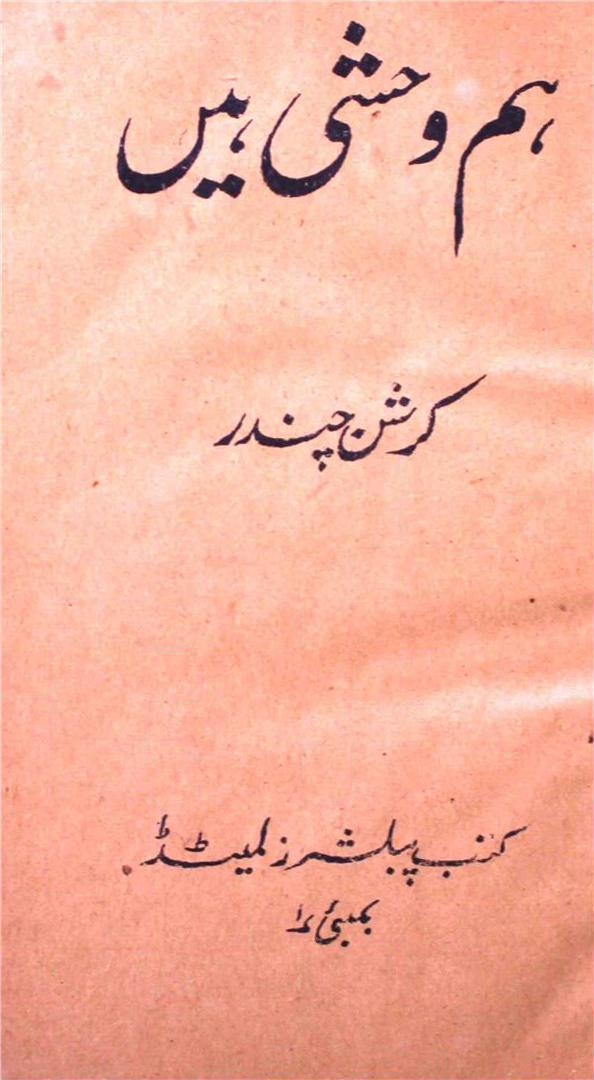 ہم وحشی ہیں
کرشن چندر
کتب پبلشرز لمیٹڈ
بمبئی ۱